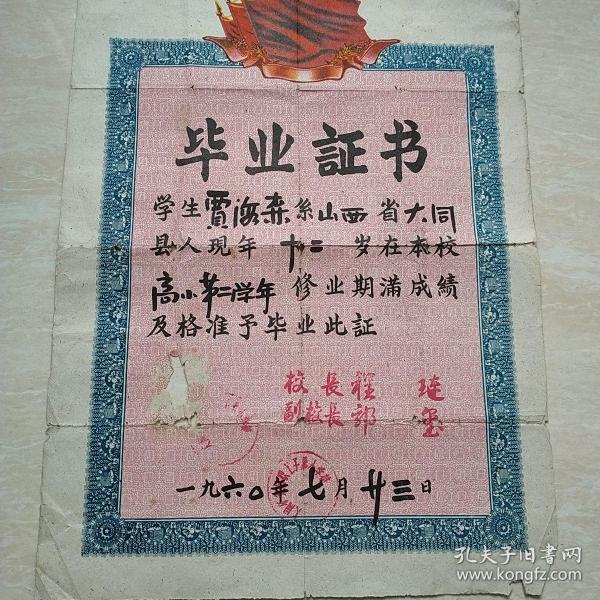 毕业証书
学生贾海森系山西省大同
县人现年十二岁在本校
高小第二学年修业期满成績
及格准予毕业此証
校長程 琏
副校長郭 玺
一九六〇年七月廿三日
孔夫子旧书网
www.kongfz.com